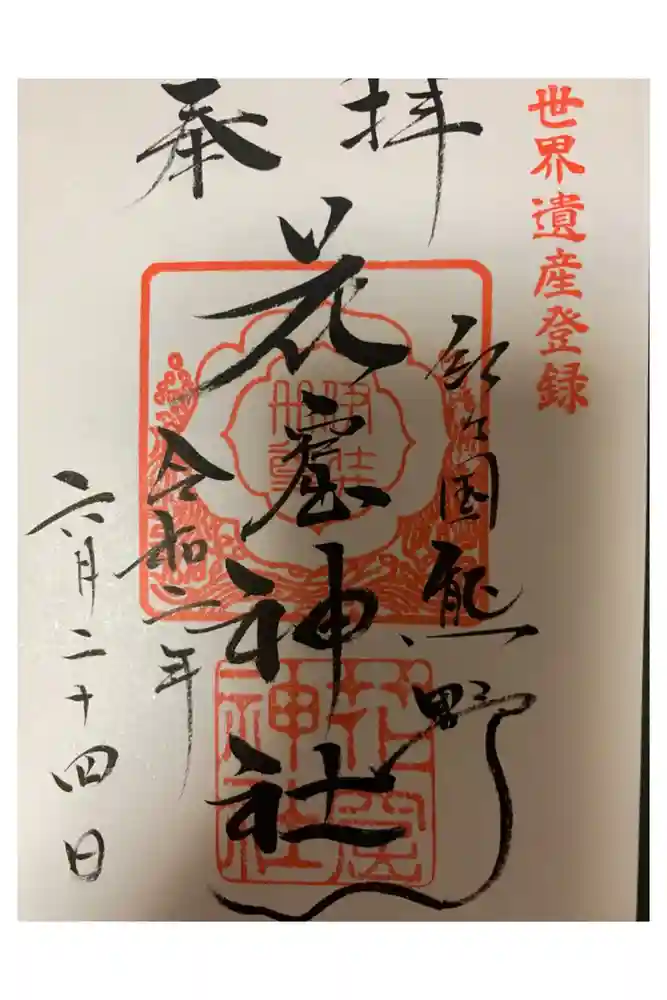 世界遺産登録
奉拝
国熊野
花窟神社
令和二年
六月二十四日
伊弉冊尊
花窟神社